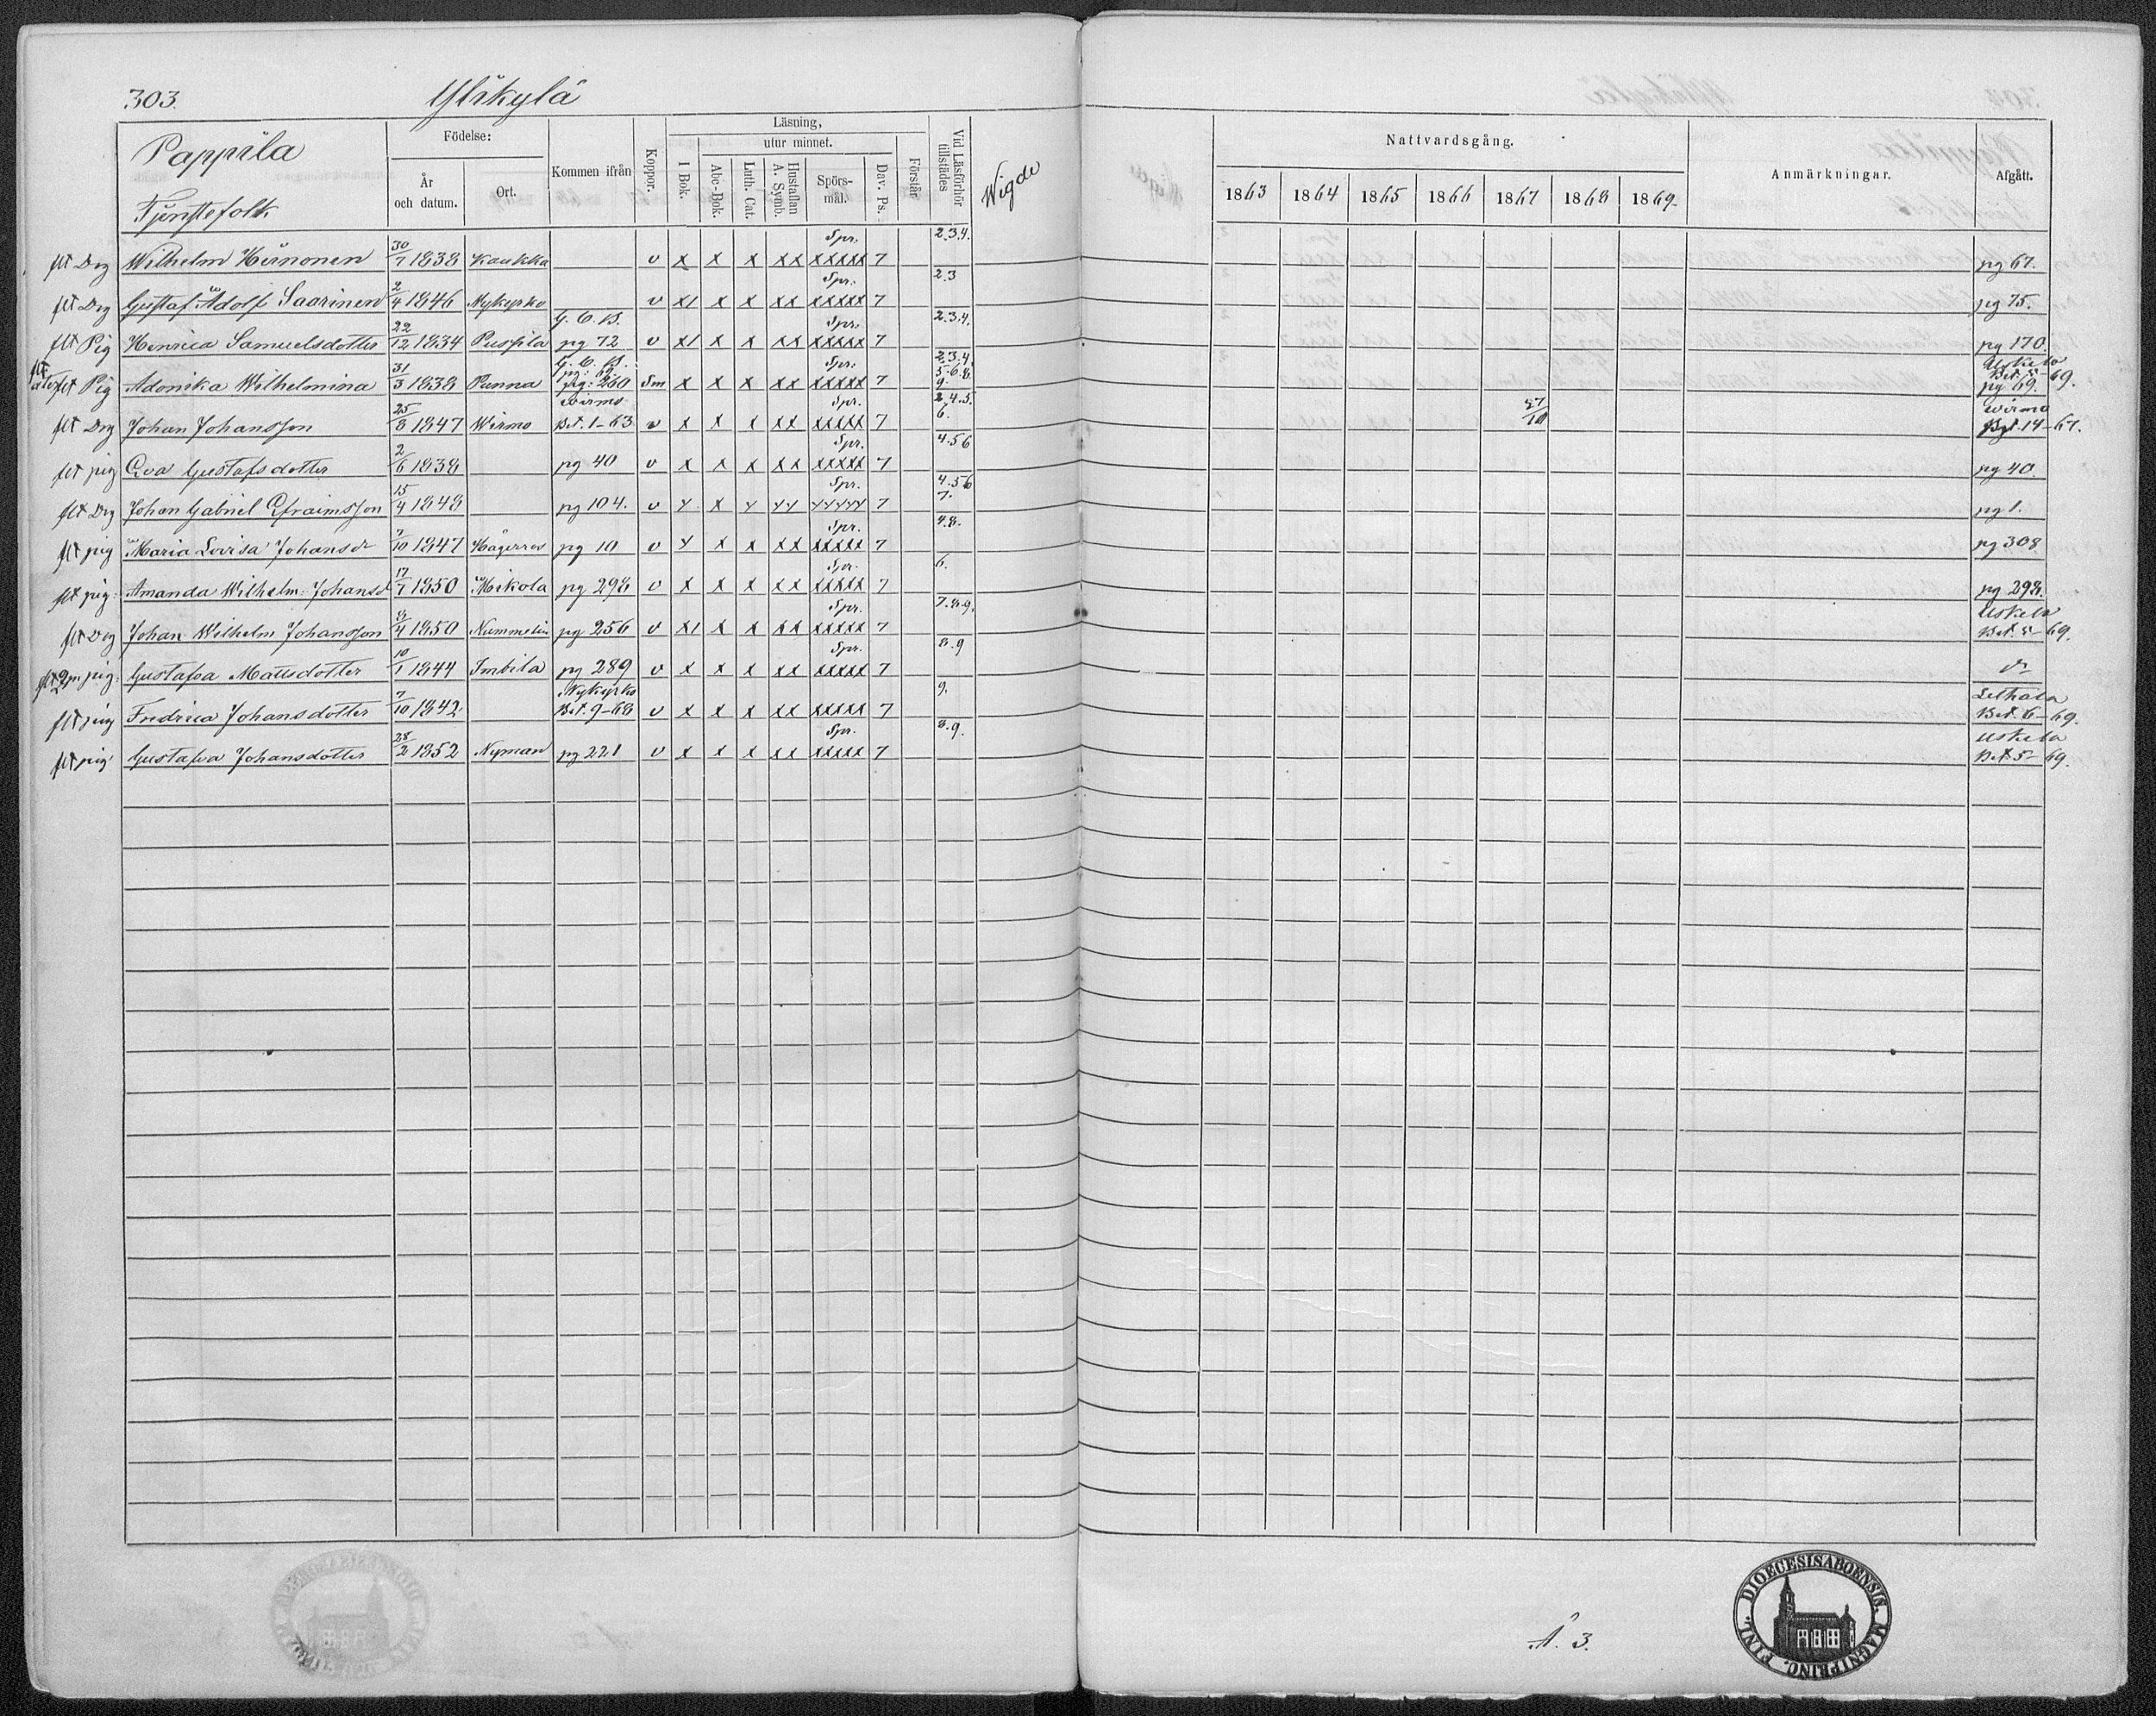 303. Ylikylä
Pappila
Tjenstefolk.
Födelse:
År och datum.
Ort.
Kommen ifrån
Koppor.
Läsning,
I Bok.
utur minnet.
Abc-Bok.
Luth. Cat.
Hustaflan A. Symb.
Spörs-mål.
Dav. Ps.
Förstår
Vid Läsförhör tillstädes
Wigde
Nattvardsgång.
1863 1864 1865 1866 1867 1868 1869
Anmärkningar.
Afgått.
flt Drg Wilhelm 30/7 1838 Kaukka v x x x xx Spr. xxxxx 7 2.3.4. pg 67.
flt Drg Gustaf Adolf Saarinen 2/4 1846 Nykyrko v xı x x xx Spr. xxxxx 7 2.3 pg 75.
flt Pig Henrica Samuelsdotter 22/12 1834 Puspila G. C. B. pg 72 v xı x x xx Spr. xxxxx 7 2.3.4. pg 170.
flt Pig Adonika Wilhelmina 31/3 1838 Punna G. C. B. pg: 260 Sm x x x xx Spr. xxxxx 7 2.3.4. 5.6.8. 9. Uskela Bet. 5-69. pg 69.
flt Drg Johan Johansson 25/8 1847 Wirmo Wirmo Bet. 1-63 v x x x xx Spr. xxxxx 7 2.4.5. 6. 27/10 Wirmo Bet. 14-67.
flt pig Eva Gustafsdotter 2/6 1838 pg 40 v x x x xx Spr. xxxxx 7 4.5 6 pg 40.
flt Drg Johan Gabriel Efraimsson 15/4 1848 pg 104. v x x x xx Spr. xxxxx 7 4.5 6 7. pg 1.
flt pig Maria Lovisa Johansdr 7/10 1847 pg 10 v x x x xx Spr. xxxxx 7 4.8. pg 308
flt pig: Amanda Wilhelm: Johansd 17/7 1850 Mikola pg 298 v x x x xx Spr. xxxxx 7 6. pg 298.
flt Drg Johan Wilhelm Johansson 8/4 1850 Nummelin pg 256 v xı x x xx Spr. xxxxx 7 7.8.9. Uskela Bet. 5-69.
pig: Gustafva Mattsdotter 10/1 1844 Imbila pg 289 v x x x xx Spr. xxxxx 7 8.9
flt pig Fredrica Johansdotter 7/10 1842 Nykyrko Bet. 9-68 v x x x xx xxxxx 7 9. Lethala Bet. 6-69.
flt pig Gustafva Johansdotter 28/2 1852 Nyman pg 221 v x x x xx Spr. xxxxx 7 8.9. Uskela Bet. 5-69.
A. 3.
FINL. DIOECESIS ABOENSIN. MAGNI PRINC.